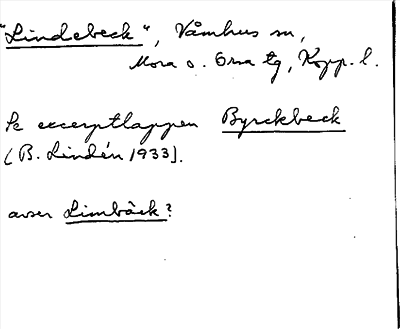 "Lindebeck", Våmhus sn,
Mora o. Orsa tg, Kopp. l.
Se excerptlappen Byrckbeck
(B. Lindén 1933].
avser Limbäck?